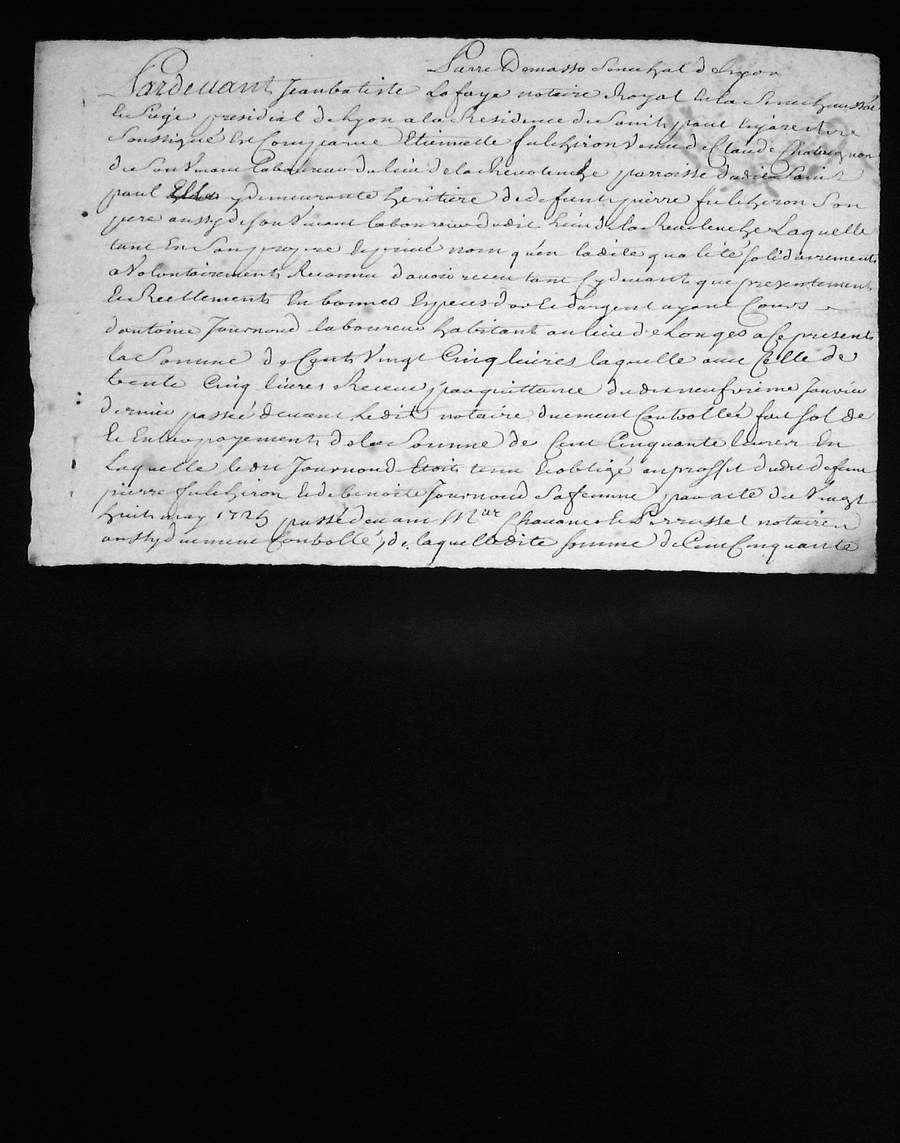 Pierre Demasso Senechal de Lyon
Pardevant Jean batiste Lafaye notaire Royal En la Senechaussée
Et Siége presidial de Lyon a la Residence de Saint paul En jarest
Soussigné En Comparue Etiennette fulchiron veuve de Claude
du son vivant Laboureur du lieu de la parroisse dudit Saint
paul y demeurante heritiere de defunt pierre fulchiron Son
pere aussy de son vivant laboureur dudit Lieu de la Laquelle
tant En Son propre Et privé nom qu'en ladite qualité solidairement
a Volontairement Reconnu d'avoir receu tant Cy devant que presentement
Et Reellement En bonnes Especes d'or Et d'argent ayant Cours
d'antoine Journoud laboureur habitant au lieu de Longes a Ce present
La Somme de Cent Vingt Cinq livres laquelle avec Celle de
trente Cinq livres Receue par quittance du dix neufvieme Janvier
dernier passée devant Ledit notaire duement Controllée fait Sol de
Et Entier payement de la Somme de Cent Cinquante livres En
Laquelle ledit Journoud Etoit tenu Et obligé au proffit dudit defunt
pierre fulchiron Et de benoite Journoud Sa femme par acte du Vingt
huit may 1725 passé devant Chavane Et notaires
aussy duement Controllé de laquelle dite Somme de Cent Cinquante